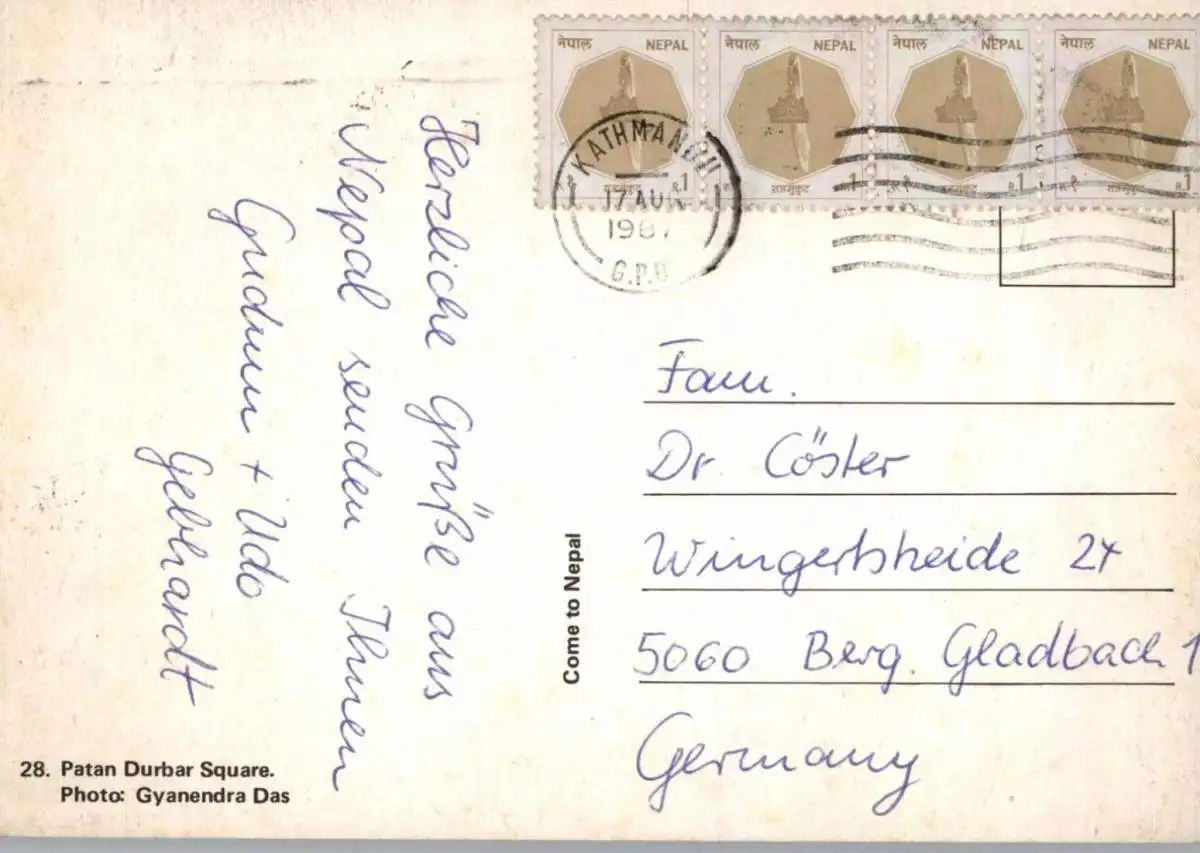 Herzliche Grüße aus
Nepal senden Ihnen
Gudrun + Udo
Gebhardt
28. Patan Durbar Square.
Photo: Gyanendra Das
Come to Nepal
नेपाल NEPAL
नेपाल NEPAL
नेपाल NEPAL
नेपाल NEPAL
रु.१ राजमुकुट R.1
राजमुकुट 1
रु.१ राजमुकुट R.1
रु.१ राजमुकुट R.1
KATHMANDU
17 AUG
1987
G.P.O
Fam.
Dr. Cöster
Wingertsheide 24
5060 Berg. Gladbach 1
Germany